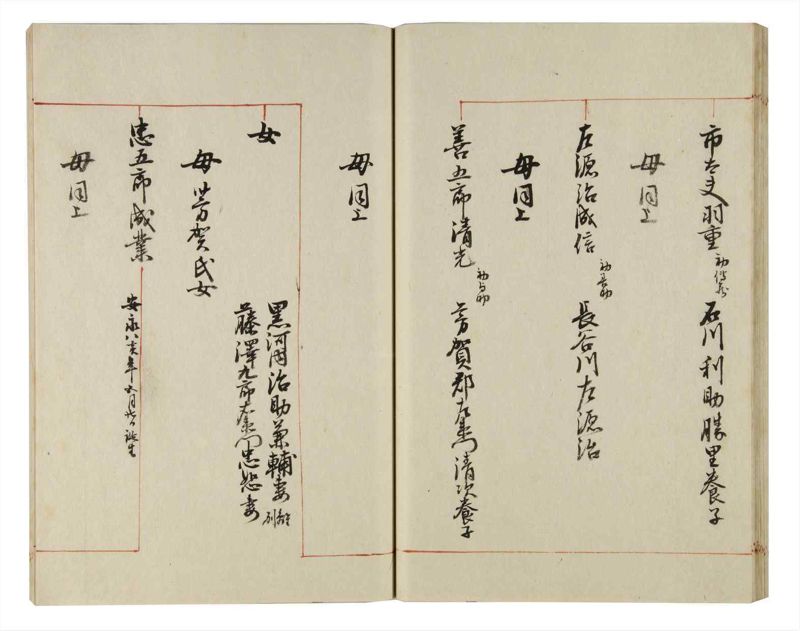 市太夫羽重 初傳蔵 石川利助勝里養子
母同上
左源治成信 初長助 長谷川左源治
母同上
善五郎清光 初与助 芳賀郡左衛門清次養子
母同上
女 黒河内治助兼輔妻 離別
藤澤九郎右衛門忠恕妻
母芳賀氏女
忠五郎成業 安永八亥年六月 誕生
母同上